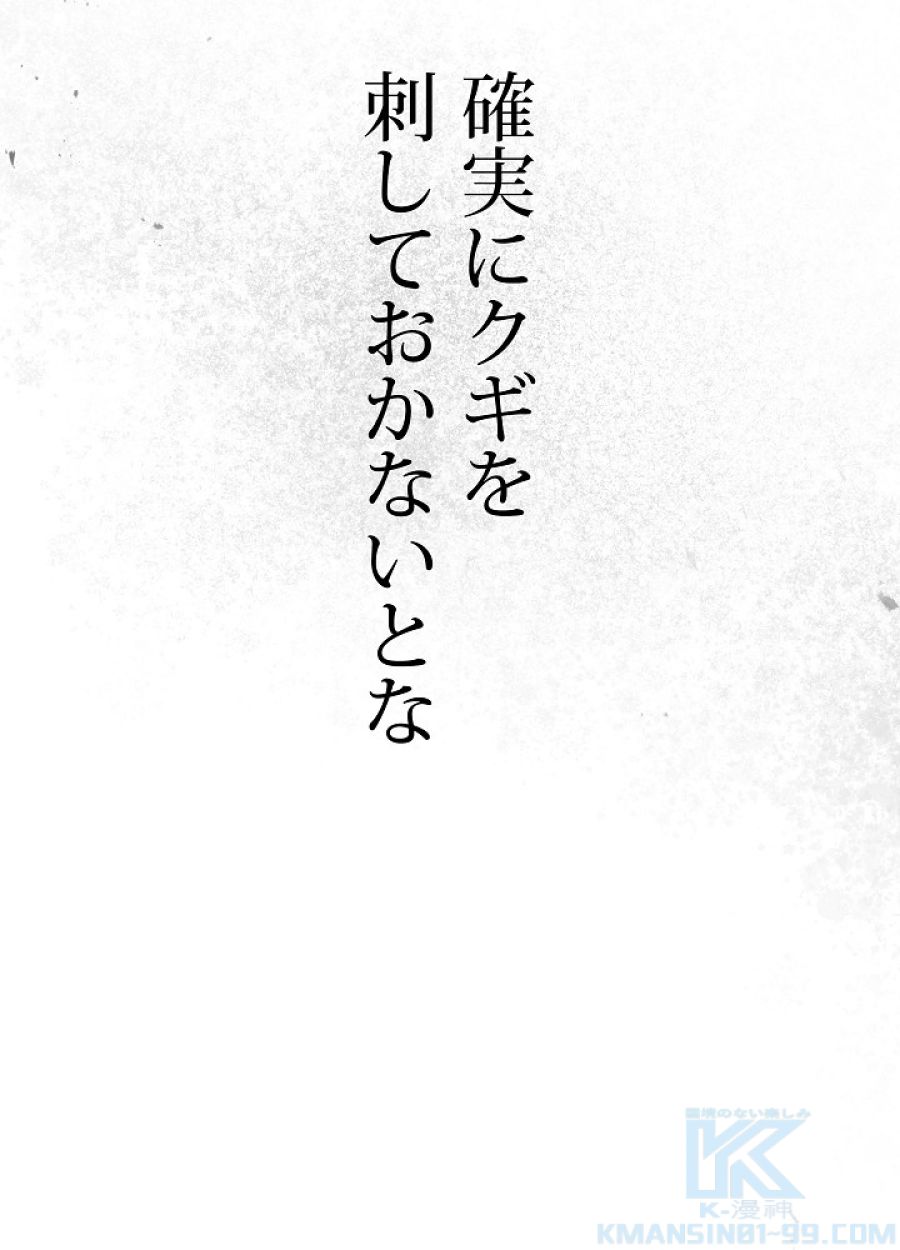 確実にクギを
刺しておかないとな
国境のない楽しみ
K-漫神
KMANSIN01-99.COM